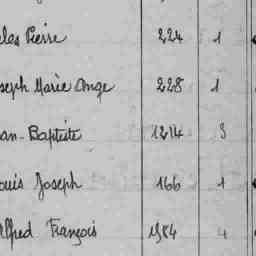 les Pierre 224 1
seph Marie Ange 228 1
an-Baptiste 1214 3
ouis Joseph 166 1
Alfred François 1984 4